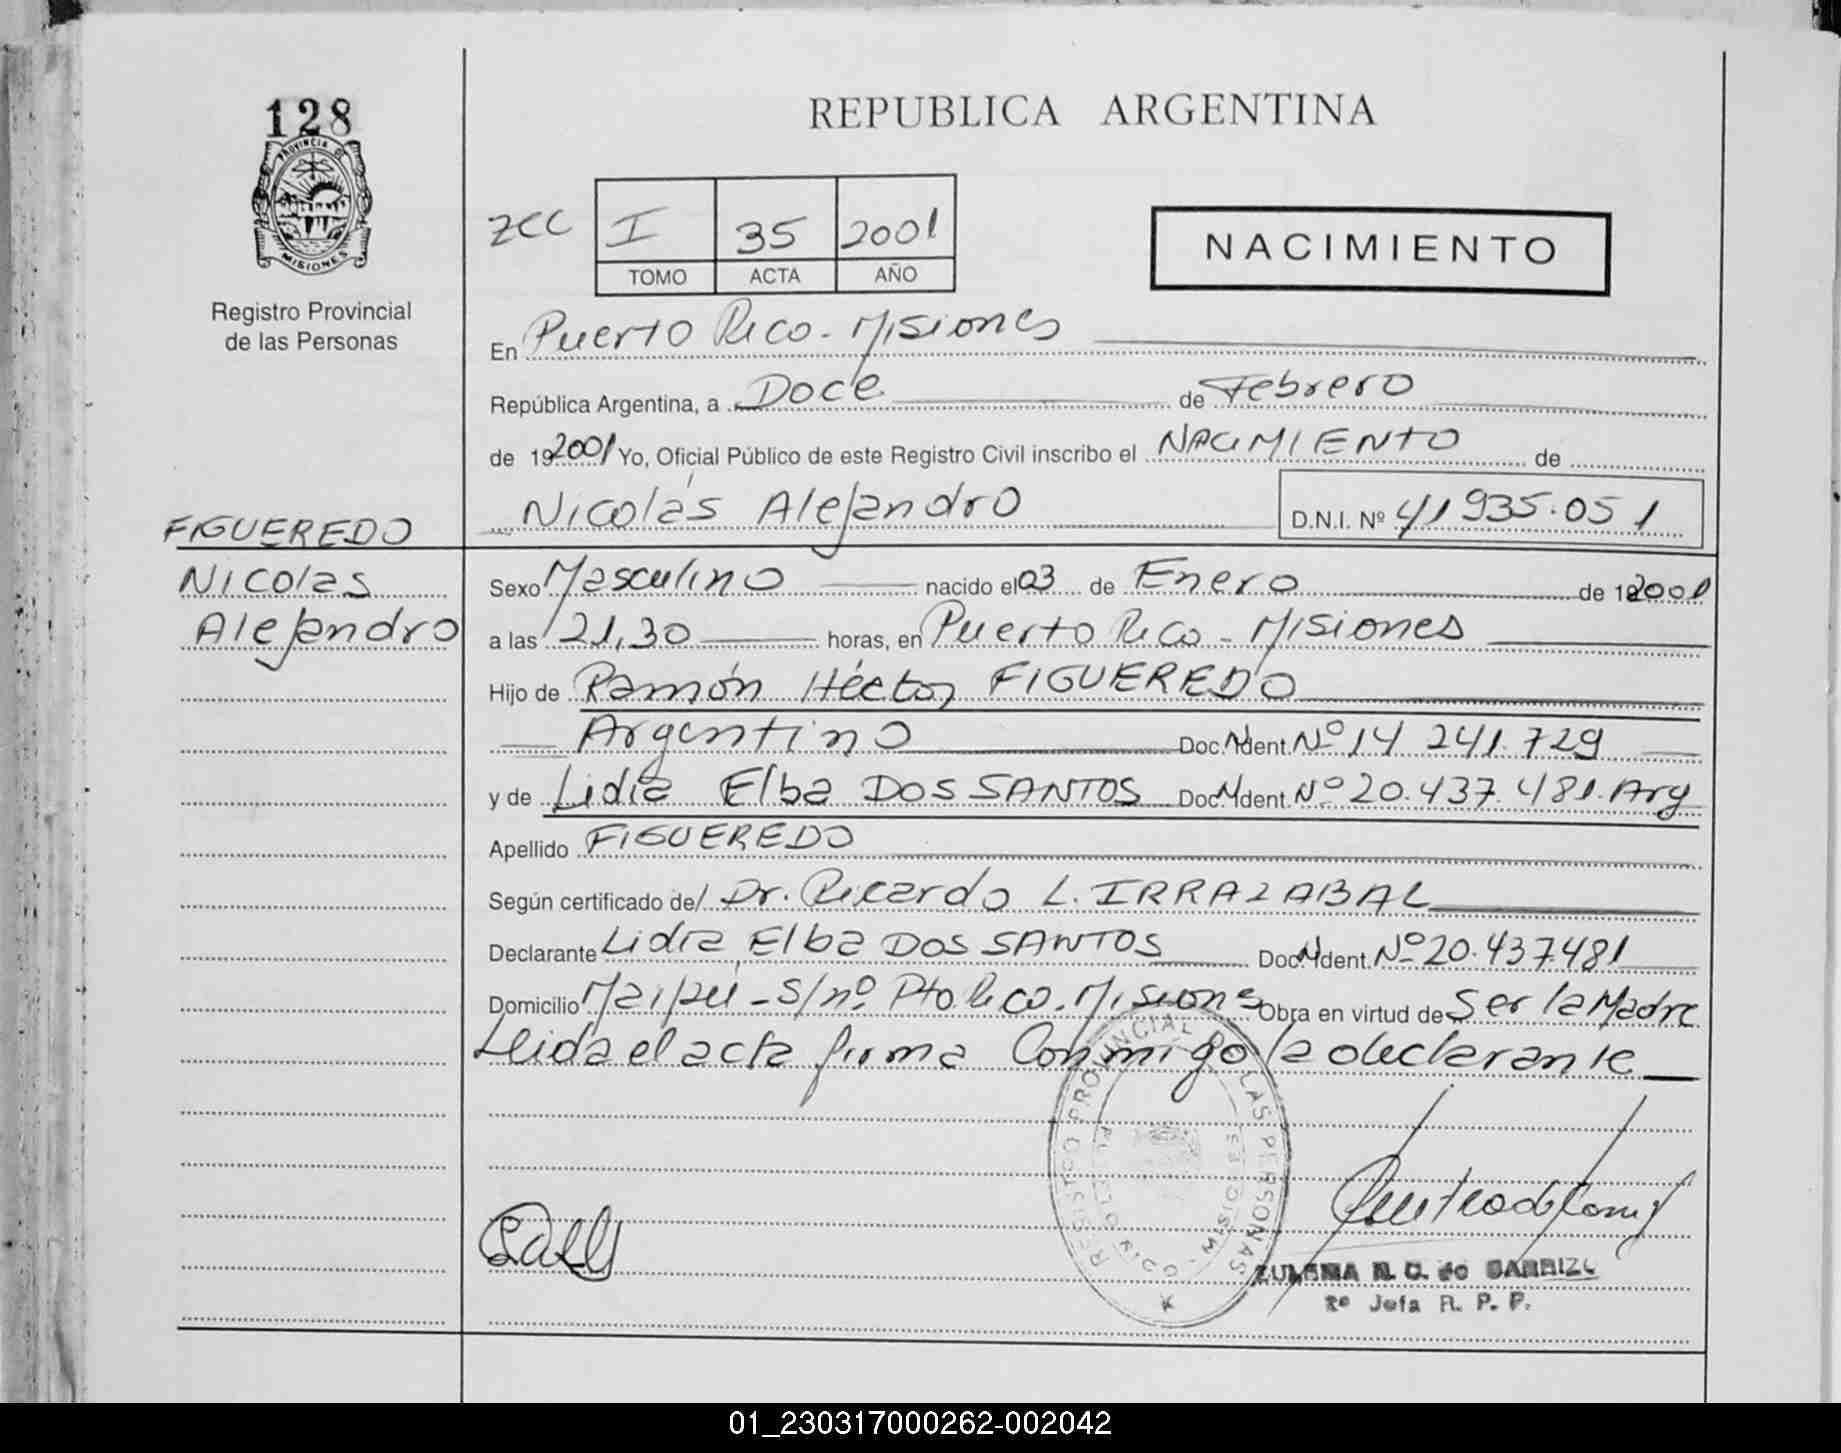 128
PROVINCIA DE
MISIONES
Registro Provincial
de las Personas
REPUBLICA ARGENTINA
zcc I 35 2001
TOMO ACTA AÑO
NACIMIENTO
En Puerto Rico - Misiones
República Argentina, a Doce de Febrero
de 192001 Yo, Oficial Público de este Registro Civil inscribo el NACIMIENTO de
Nicolás Alejandro D.N.I. Nº 41935.051
FIGUEREDO
Nicolas
Alejandro
Sexo Masculino nacido el 03 de Enero de 192001
a las 21,30 horas, en Puerto Rico - Misiones
Hijo de Ramón Héctor FIGUEREDO
Argentino Doc. Ident. Nº 14 241.729
y de Lidia Elba DOS SANTOS Doc. Ident. Nº 20.437.481. Arg
Apellido FIGUEREDO
Según certificado de/ Dr. Ricardo L. IRRAZABAL
Declarante Lidia Elba DOS SANTOS Doc. Ident. Nº 20.437.481
Domicilio Maipú - S/nº Pto Rico. Misiones Obra en virtud de Ser la Madre
Leida el acta firma Conmigo la declarante
REGISTRO PROVINCIAL DE LAS PERSONAS
MISIONES
de
2º Jefa R. P. P.
01_230317000262-002042